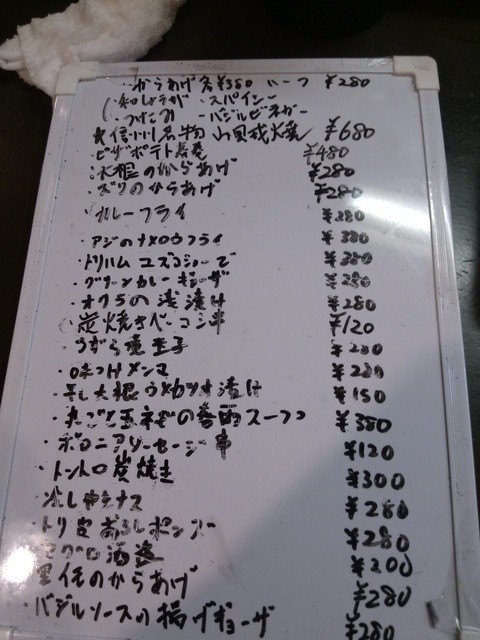 ・からあげ 各¥380 ハーフ ¥280
・スパイシー
・バジルビネガー
★信州名物 山賊焼 ¥680
ピザポテト春巻 ¥480
・大根のからあげ ¥280
・ズリのからあげ ¥280
・カレーフライ ¥280
・アジのナメロウフライ ¥380
・トリハム ユズコショーで ¥380
・グリーンカレーギョーザ ¥280
・オクラの浅漬け ¥280
・炭焼きベーコン串 ¥120
・うずら燻玉子 ¥280
・味つけメンマ ¥280
・干し大根ウメカツオ漬け ¥150
・丸ごと玉ネギの スープ ¥380
・ボロニアソーセージ串 ¥120
・トントロ炭焼き ¥300
・冷しやきナス ¥280
・トリ皮おろしポンズ ¥280
¥200
のからあげ ¥280
・バジルソースの揚げギョーザ ¥280